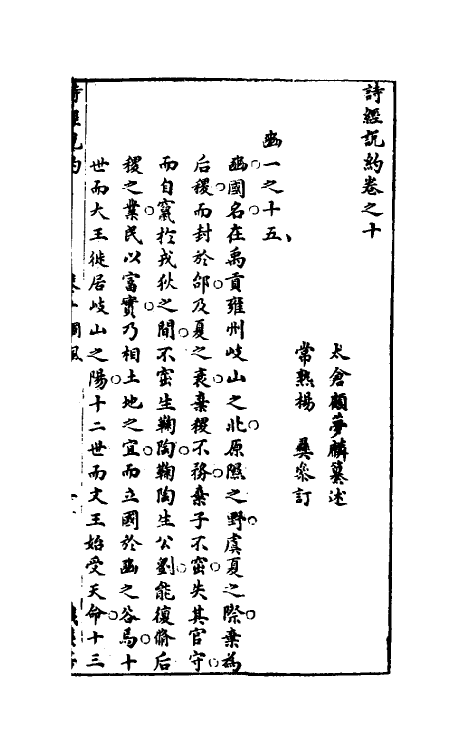 詩經說約卷之十
太倉顧夢麟纂述
常熟楊彝參訂
豳一之十五
豳國名在禹貢雍州岐山之北原隰之野虞夏之際棄為
后稷而封於邰及夏之衰棄稷不務棄子不窋失其官守
而自竄於戎狄之間不窋生鞠陶鞠陶生公劉能復脩后
稷之業民以富實乃相土地之宜而立國於豳之谷焉十
世而大王徙居岐山之陽十二世而文王始受天命十三
詩經說約